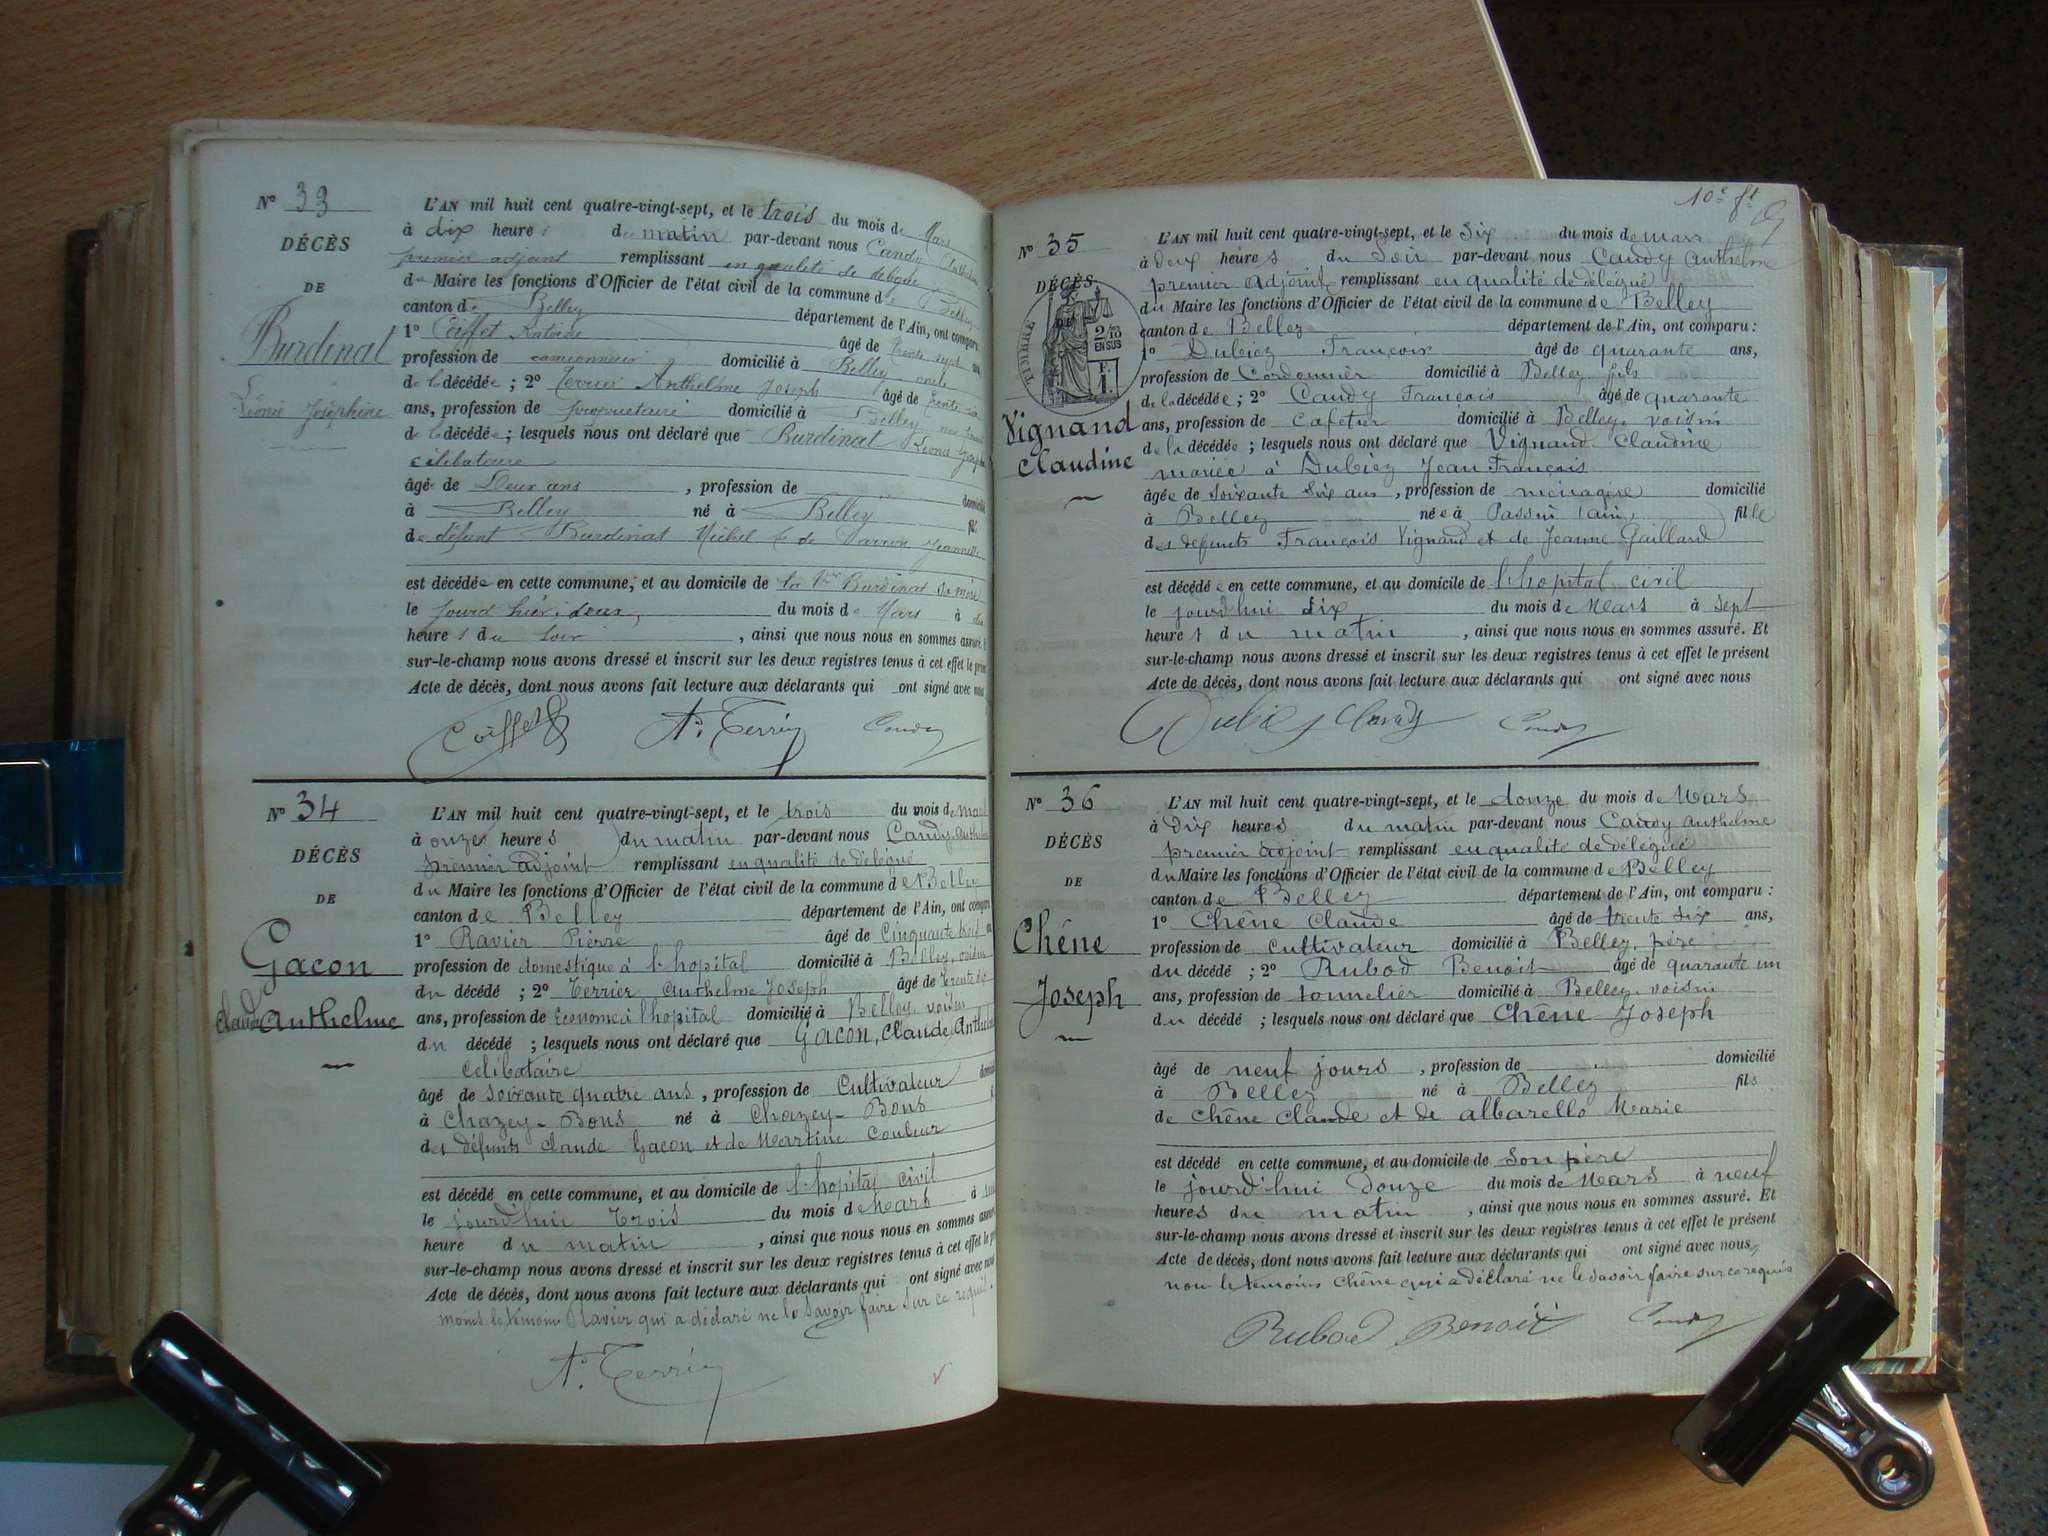 N° 33
DÉCÈS
DE
Burdinat
Léonie Joséphine
L'AN mil huit cent quatre-vingt-sept, et le trois du mois de Mars
à dix heures du matin par-devant nous Candy Anthelme
premier adjoint remplissant en qualité de délégué
du Maire les fonctions d'Officier de l'état civil de la commune de Belley
canton de Belley département de l'Ain, ont comparu
1° Coiffet âgé de trente sept
profession de camionneur domicilié à Belley oncle
de la décédée ; 2° Terrier Anthelme Joseph âgé de trente six
ans, profession de propriétaire domicilié à Belley
de la décédée ; lesquels nous ont déclaré que Burdinat Léonie Joséphine
célibataire
âgée de Deux ans , profession de domicilié
à Belley né à Belley fille
de défunt Burdinat Michel & de Jeannette
est décédée en cette commune, et au domicile de la Vve Burdinat sa mère
le jourd'hier, deux, du mois de Mars à dix
heures du soir , ainsi que nous nous en sommes assuré. E
sur-le-champ nous avons dressé et inscrit sur les deux registres tenus à cet effet le prés
Acte de décès, dont nous avons fait lecture aux déclarants qui ont signé avec nous
Coiffet A. Terrier Candy
N° 34
DÉCÈS
DE
Gacon
Claude Anthelme
L'AN mil huit cent quatre-vingt-sept, et le trois du mois de mars
à onze heures du matin par-devant nous Candy Anthelme
premier adjoint remplissant en qualité de délégué
du Maire les fonctions d'Officier de l'état civil de la commune de Belley
canton de Belley département de l'Ain, ont comparu
1° Ravier Pierre âgé de Cinquante neuf
profession de domestique à l'hopital domicilié à Belley, voisin
du décédé ; 2° Terrier Anthelme Joseph âgé de Trente six
ans, profession de Econome à l'hopital domicilié à Belley, voisin
du décédé ; lesquels nous ont déclaré que Gacon, Claude Anthelme
Célibataire
âgé de soixante quatre ans , profession de Cultivateur domici
à Chazey-Bons né à Chazey-Bons
des défunts Claude Gacon et de Martine Couleur
est décédé en cette commune, et au domicile de l'hopital civil
le jourd'hui Trois du mois de Mars à
heure du matin , ainsi que nous nous en sommes assuré
sur-le-champ nous avons dressé et inscrit sur les deux registres tenus à cet effet le pr
Acte de décès, dont nous avons fait lecture aux déclarants qui ont signé avec nous
moins le témoin Ravier qui a déclaré ne le savoir faire sur ce requis
A. Terrier
10e ft
N° 35
DÉCÈS
TIMBRE
2/10 EN SUS
Vignand
Claudine
L'AN mil huit cent quatre-vingt-sept, et le Six du mois de mars
à deux heures du Soir par-devant nous Candy Anthelme
premier adjoint remplissant en qualité de délégué
du Maire les fonctions d'Officier de l'état civil de la commune de Belley
canton de Belley département de l'Ain, ont comparu :
1° Dubiez François âgé de quarante ans,
profession de Cordonnier domicilié à Belley, fils
de la décédée ; 2° Candy François âgé de quarante
ans, profession de Cafetier domicilié à Belley, voisin
de la décédée ; lesquels nous ont déclaré que Vignand Claudine
mariée à Dubiez Jean François
âgée de soixante six ans , profession de ménagère domicilié
à Belley née à Passin (ain) fille
des défunts François Vignand et de Jeanne Gaillard
est décédée en cette commune, et au domicile de l'hopital civil
le jourd'hui six du mois de Mars à sept
heures du matin , ainsi que nous nous en sommes assuré. Et
sur-le-champ nous avons dressé et inscrit sur les deux registres tenus à cet effet le présent
Acte de décès, dont nous avons fait lecture aux déclarants qui ont signé avec nous
Dubiez Candy Candy
N° 36
DÉCÈS
DE
Chêne
Joseph
L'AN mil huit cent quatre-vingt-sept, et le douze du mois de Mars
à Dix heures du matin par-devant nous Candy Anthelme
premier adjoint remplissant en qualité de délégué
du Maire les fonctions d'Officier de l'état civil de la commune de Belley
canton de Belley département de l'Ain, ont comparu :
1° Chêne Claude âgé de trente six ans,
profession de cultivateur domicilié à Belley, père
du décédé ; 2° Rubod Benoit âgé de quarante un
ans, profession de tonnelier domicilié à Belley, voisin
du décédé ; lesquels nous ont déclaré que Chêne Joseph
âgé de neuf jours , profession de domicilié
à Belley né à Belley fils
de Chêne Claude et de Albarello Marie
est décédé en cette commune, et au domicile de son père
le jourd'hui Douze du mois de Mars à neuf
heures du matin , ainsi que nous nous en sommes assuré. Et
sur-le-champ nous avons dressé et inscrit sur les deux registres tenus à cet effet le présent
Acte de décès, dont nous avons fait lecture aux déclarants qui ont signé avec nous,
non le témoins Chêne qui a déclaré ne le savoir faire sur ce requis
Rubod Benoit Candy